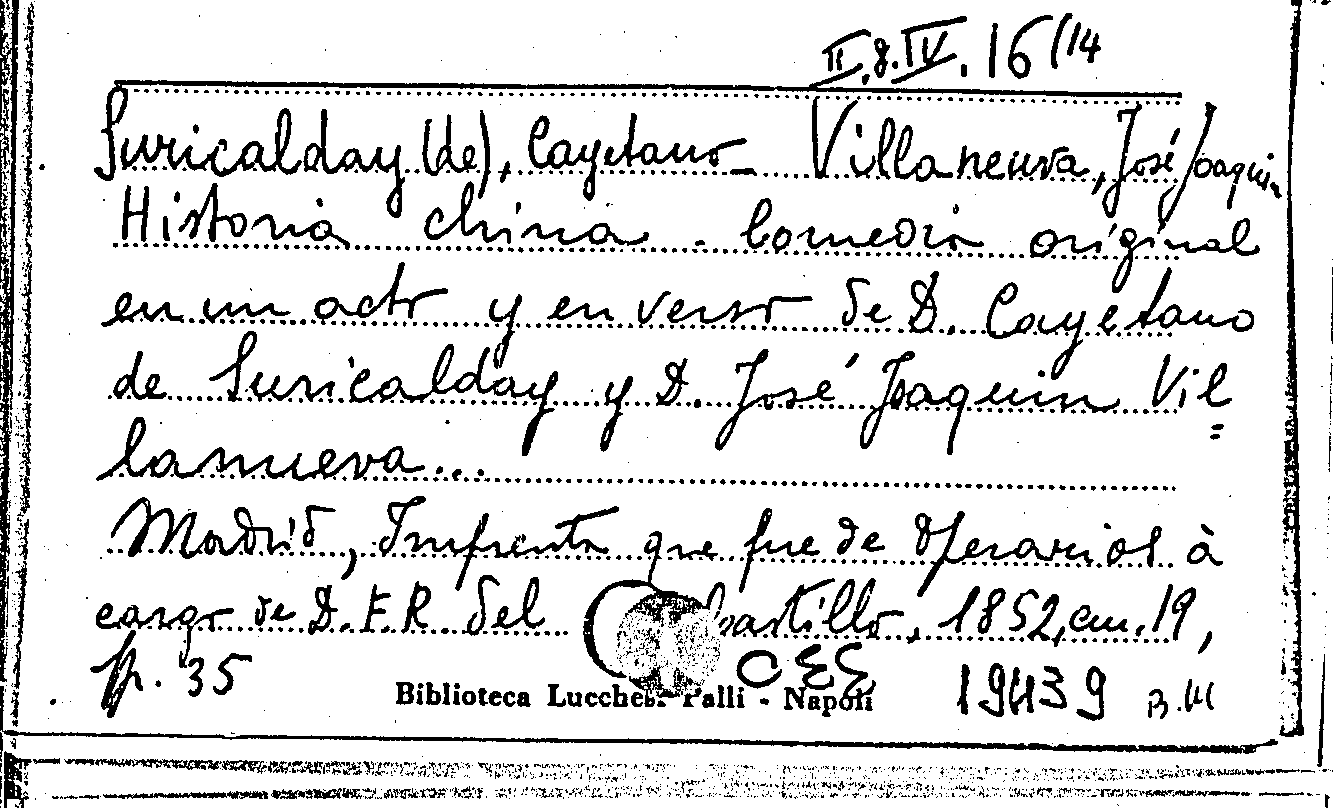 II.8.IV.16(14
Suricalday (de), Cayetano - Villaneuva, José Joaquin
Historia china - Comedia original
en un acto y en verso de D. Cayetano
de Suricalday y D. José Joaquin Vil=
lanueva...
Madrid, Imprenta que fue de Operarios à
cargo de D. F. R. del Castillo, 1852, cm. 19,
p. 35
Biblioteca Lucchesi Palli - Napoli
19439 B.M